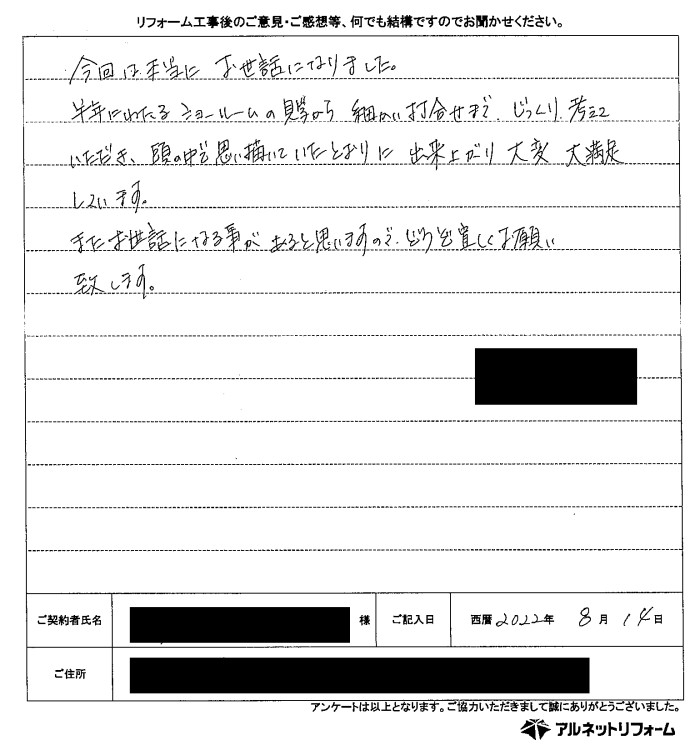 リフォーム工事後のご意見・ご感想等、何でも結構ですのでお聞かせください。
今回は本当に お世話になりました。
半年にわたる ショールームの見学から 細かい打合せまで、じっくり 考えて
いただき、頭の中で思い描いていたとおりに 出来上がり 大変 大満足
しています。
またお世話になる事が あると思いますので、どうぞ宜しくお願い
致します。
ご契約者氏名 様 ご記入日 西暦 2022年 8月 14日
ご住所
アンケートは以上となります。ご協力いただきまして誠にありがとうございました。
アルネットリフォーム